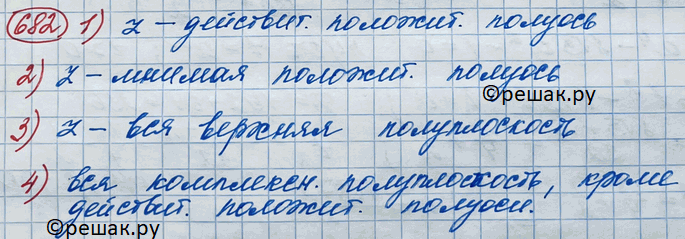 682) 1) z – действит. положит. полуось
2) z – мнимая положит. полуось
©решак.ру
3) z – вся верхняя полуплоскость
4) вся комплексн. полуплоскость, кроме
действит. положит. полуоси.
©решак.ру